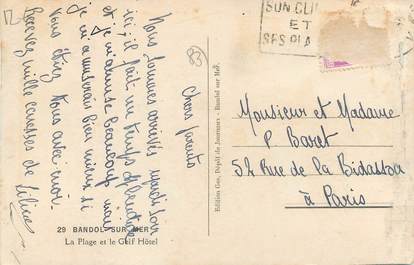 SON CLI
ET
SES PLA
83
Chers parents
Nous sommes arrivés mardi soir
ici, il fait un temps splendide
et je m'amuse beaucoup mais
je m'amuserais bien mieux si
vous étiez tous avec moi.
Recevez mille caresses de
Monsieur et Madame
P Baret
52 Rue de la Bidassoa
à Paris
29 BANDOL-SUR-MER
La Plage et le Golf Hôtel
Edition Gas, Dépôt de Journaux - Bandol sur Mer